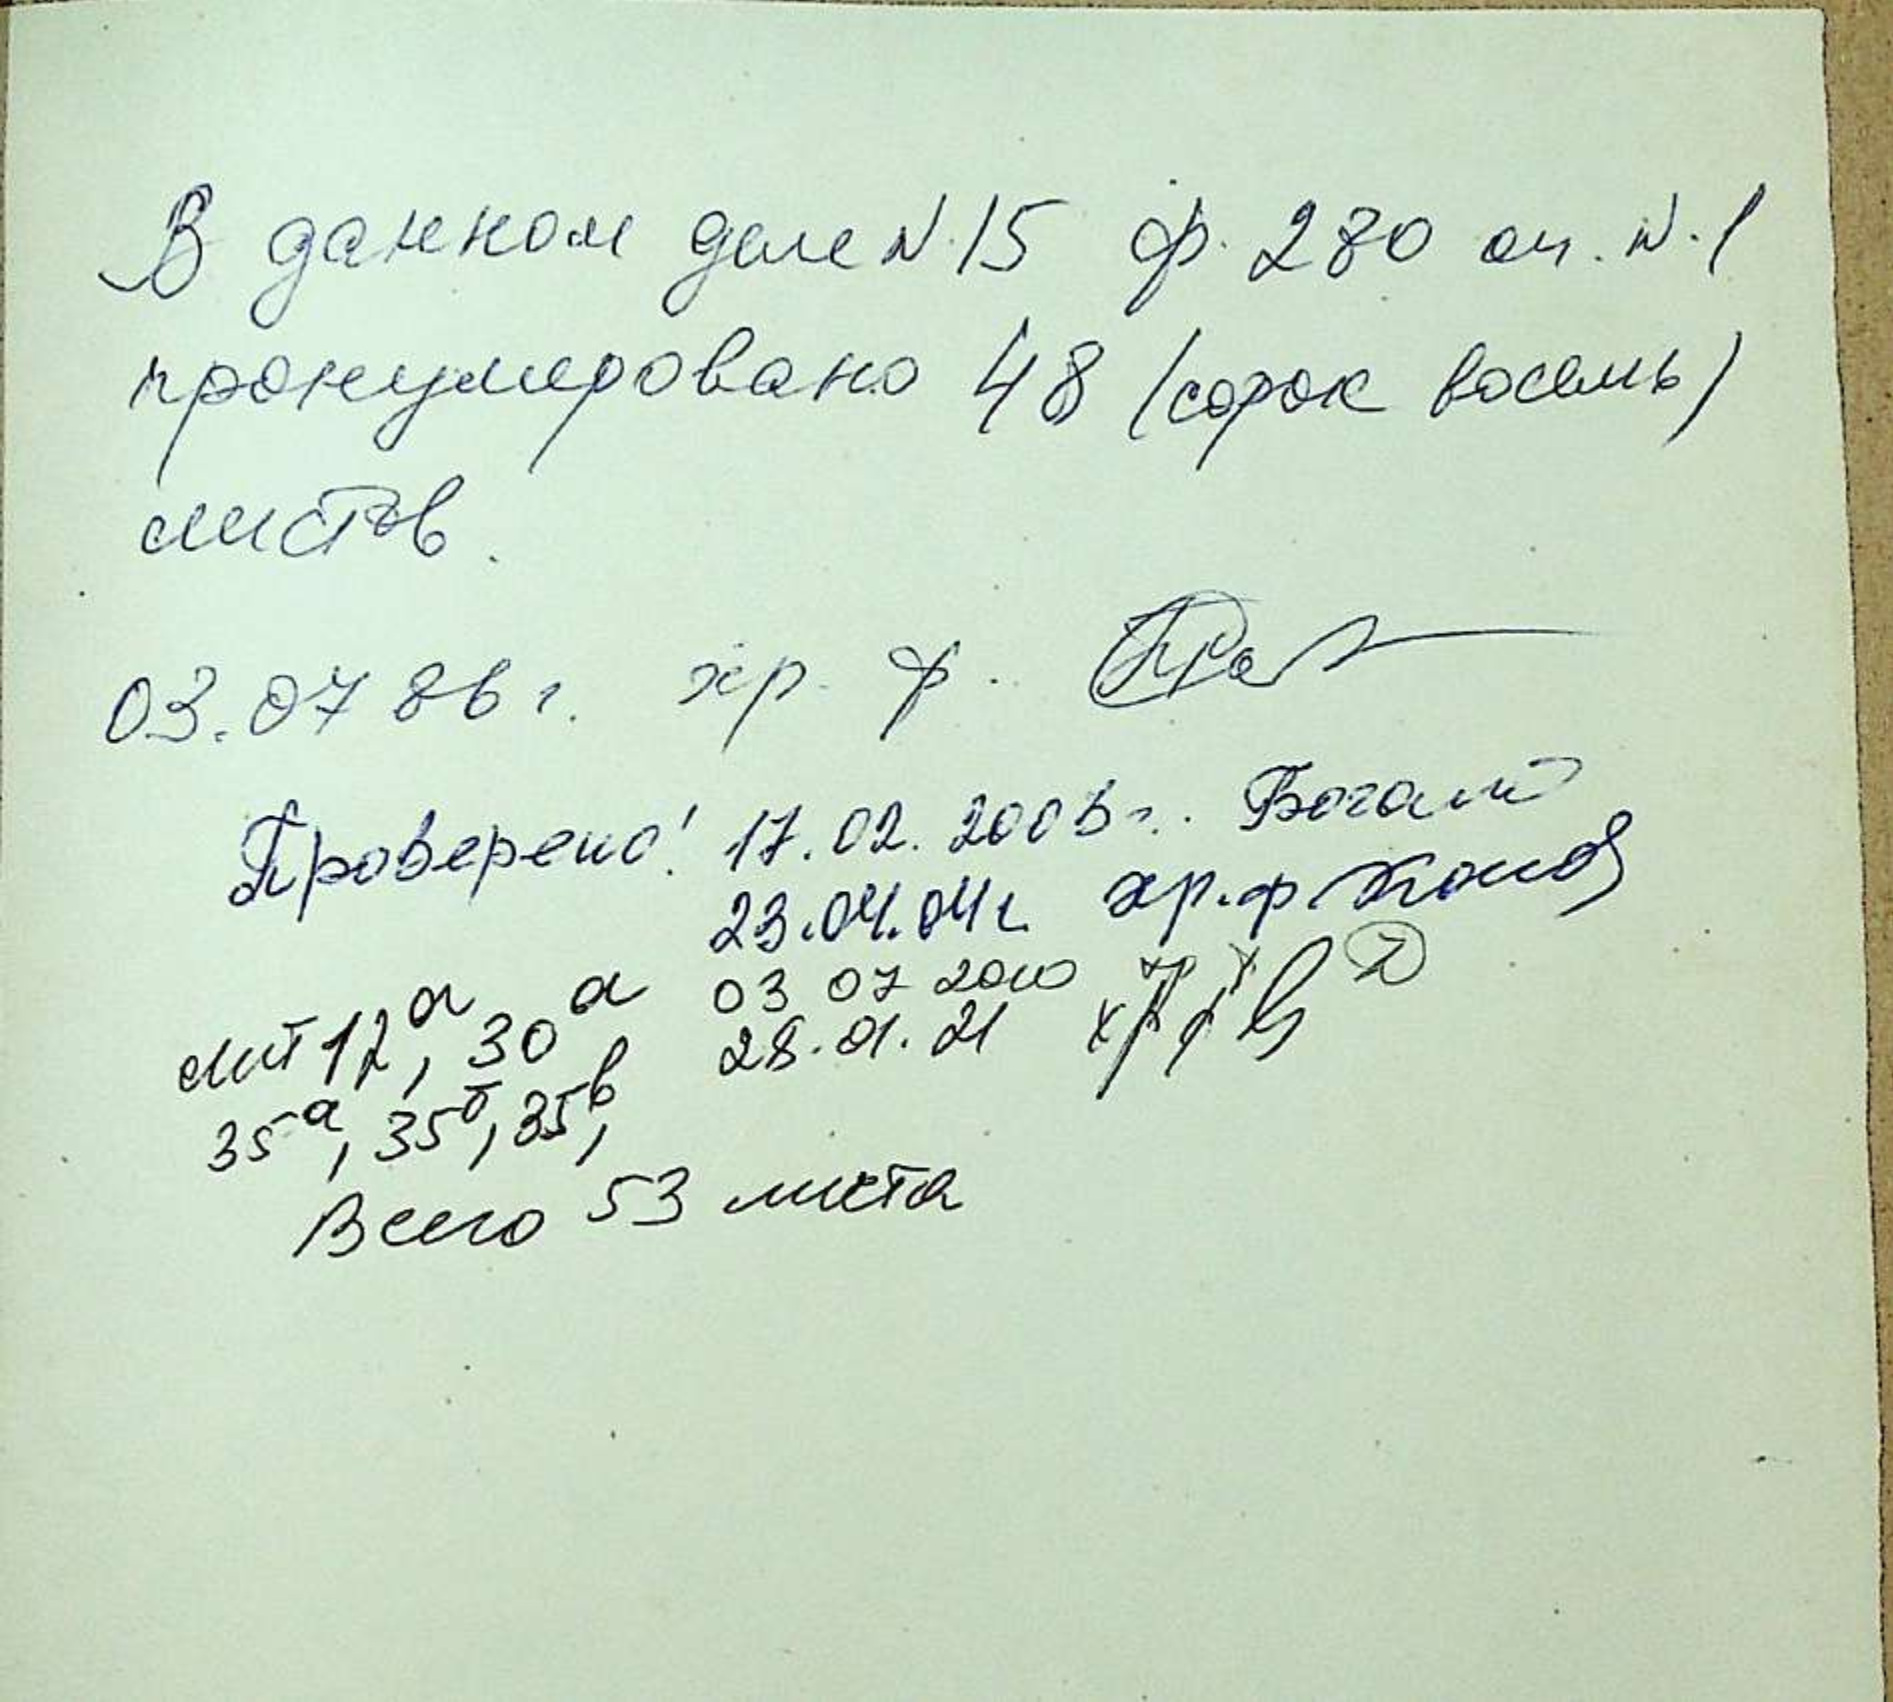 В данном деле N 15 ф. 280 оп. N. 1
пронумеровано 48 (сорок восемь)
листов.
03.07 86 г. хр. ф.
Проверено! 17.02.2003 г.
23.04.04 г. хр. ф
03 07 2010 хр ф
28.01.21 хр ф
лит 12а, 30а
35а, 35б, 35в,
Всего 53 листа